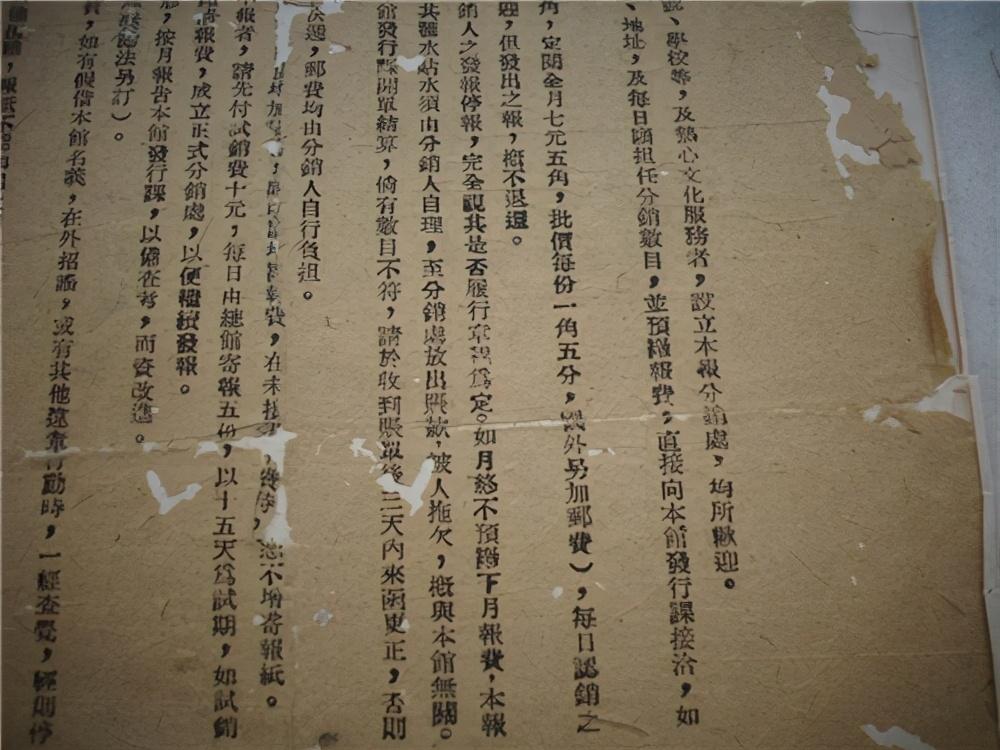 、學校等，及熱心文化服務者，設立本報分銷處，均所歡迎。
、地址，及每日願担任分銷數目，並預繳報費，直接向本館發行課接洽，如
角，定閱全月七元五角，批價每份一角五分，國外另加郵費），每日認銷之
，但發出之報，抵不退還。
銷人之發報停報，完全視其是否履行章程爲定。如月終不預繳下月報費，本報
其匯水貼水須由分銷人自理，至分銷處放出賬款，被人拖欠，抵與本館無關。
館發行課開單結算，倘有數目不符，請於收到賬單後三天內來函更正，否則
遞，郵費均由分銷人自行負担。
報費，在未接，恕不增寄報紙。
報者，請先付試銷費十元，每日由總館寄報五份，以十五天爲試期，如試銷
報費，成立正式分銷處，以便繼續發報。
，按月報告本館發行課，以備查考，而資改進。
辦法另訂）。
，如有假借本館名義，在外招搖，或有其他違章行動時，一經查覺，停